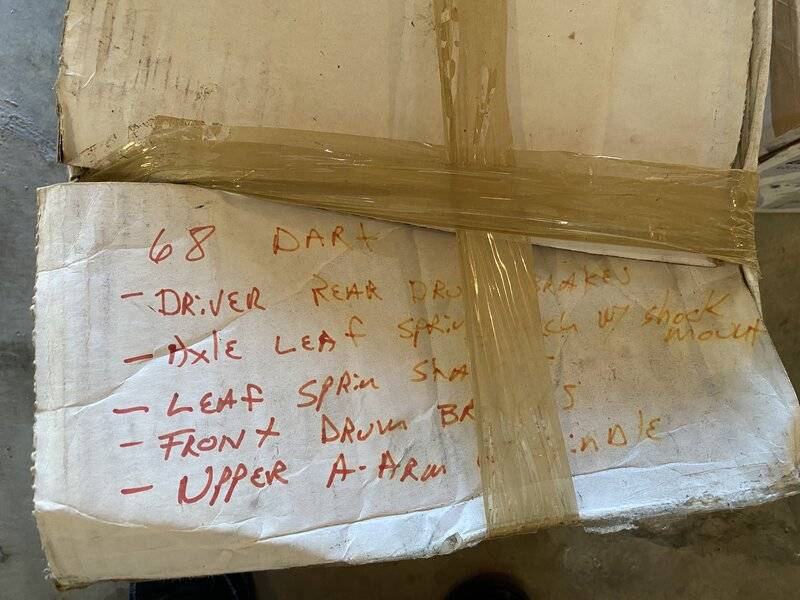 68 DART
- DRIVER REAR DRUM BRAKES
- AXLE LEAF SPRING w/ shock mount
- LEAF SPRIN
- FRONT DRUM BRAKES
- UPPER A-ARM SPINDLE